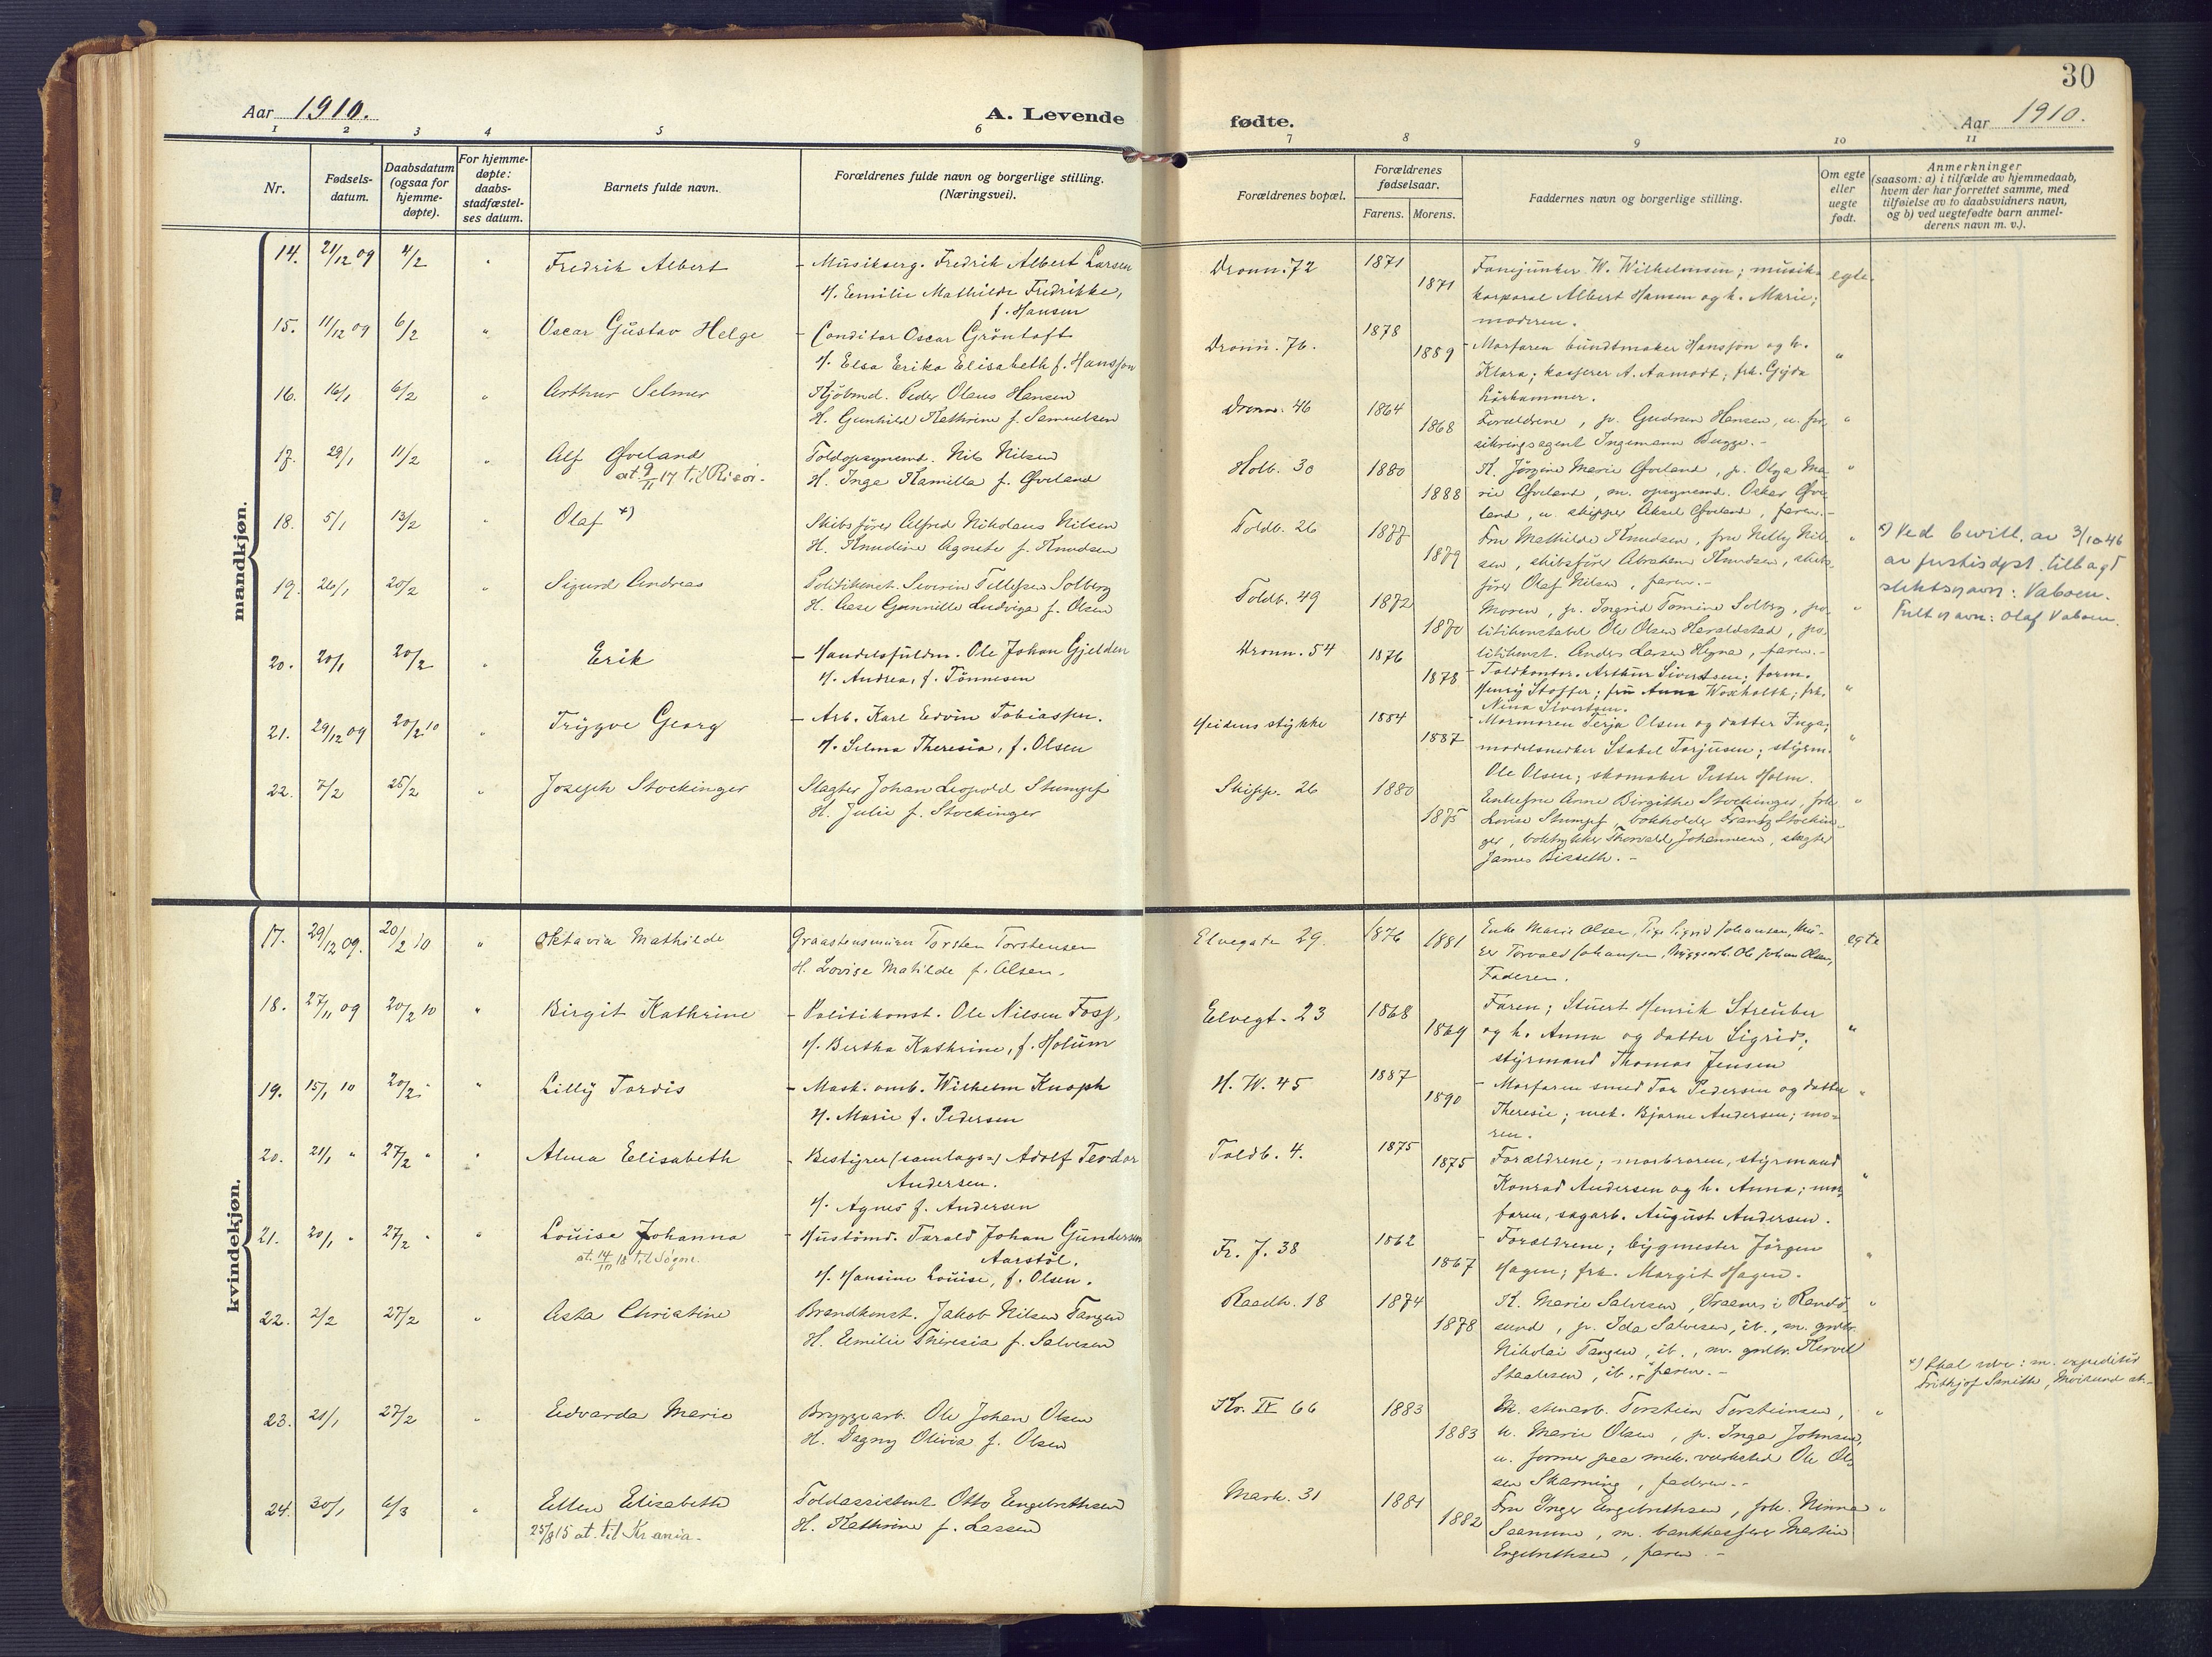 30
Aar 1910.
A. Levende
fødte.
Aar 1910.
1 2 3 4 5 6 7 8 9 10 11
Nr.
Fødsels-
datum.
Daabsdatum
(ogsaa for
hjemme-
døpte).
For hjemme-
døpte:
daabs-
stadfæstel-
ses datum.
Barnets fulde navn.
Forældrenes fulde navn og borgerlige stilling.
(Næringsvei).
Forældrenes bopæl.
Forældrenes
fødselsaar.
Farens. Morens.
Faddernes navn og borgerlige stilling.
Om egte
eller
uegte
født.
Anmerkninger
(saasom: a) i tilfælde av hjemmedaab,
hvem der har forrettet samme, med
tilføielse av to daabsvidners navn,
og b) ved uegtefødte barn anmel-
derens navn m. v.).
mandkjøn.
14. 21/12 09 4/2 " Fredrik Albert - Musikserg. Fredrik Albert Larsen Dronn. 72 1871 Fanejunker W. Wilhelmsen; musik- egte.
H. Emilie Mathilde Fredrikke, 1871 korporal Albert Hansen og h. Marie;
f. Hansen moderen.
15. 11/12 09 6/2 " Oscar Gustav Helge - Conditor Oscar Gröntoft Dronn. 76. 1878 - Morfaren bundtmaker Hansson og h. "
H. Elsa Erika Elisabeth f. Hansson 1889 Klara; kasserer A. Aamodt; frk. Gyda
16. 16/1 6/2 " Arthur Selmer Kjøbmd. Peder Olaus Hansen Dronn. 46 1864 Forældrene, p. Gudrun Hansen, u. for- "
H. Gunhild Kathrine f. Samuelsen 1868 sikringsagent Ingemann Bugge. -
17. 29/1 11/2 " Alf Øveland Toldopsynsmd. Nils Nilsen Holb. 30 1880 K. Jörgine Marie Øveland, p. Olga Ma- "
at. 9/11 17 til Risör. H. Inga Kamilla f. Øveland 1888 rie Øveland, m. opsynsmd. Oskar Øve-
land, u. skipper Aksel Øveland, faren. -
18. 5/1 13/2 " Olaf x) Skibsfører Alfred Nikolaus Nilsen Toldb. 26 1877 Fru Mathilde Knudsen, fru Nelly Nil- " x) Ved bevill. av 3/10 46
H. Knudine Agnete f. Knudsen 1879 sen, skibsfører Abraham Knudsen, skibs- av justisdept. tillagt
fører Olaf Nilsen, faren. - slektsnavn: Vaboen.
19. 26/1 20/2 " Sigurd Andreas Politikonst. Severin Tellefsen Solberg Toldb. 49 1872 Moren, p. Ingrid Tomine Solberg, po- " Fullt navn: Olaf Vaboen.
H. Aase Gunnille Ludviga f. Olsen 1870 litikonstabel Ole Olsen Heraldstad, po-
litikonst. Anders Larsen Hegna, faren. -
20. 20/1 20/2 " Erik - Handelsfuldm. Ole Johan Gjelden Dronn. 54 1876 - Toldkontor. Arthur Sivertsen; form.
H. Andrea, f. Tönnesen 1878 Henry Stoffer; fru Anna Woxholth; frk. "
Nina Sivertsen.
21. 29/12 09 20/2 10 " Trygve Georg - Arb. Karl Edvin Tobiassen. Heidens stykke 1884 - Mormoren Terja Olsen og datter Inga;
H. Selma Theresia, f. Olsen 1887 modelsnedker Stabel Torjusen; styrm. "
Ole Olsen; skomaker Petter Holm.
22. 7/2 25/2 " Joseph Stockinger Slagter Johan Leopold Stumpf Skipp. 26 1880 Enkefru Anne Birgithe Stockinger, frk. "
H. Julie f. Stockinger 1875 Lovise Stumpf, bokholder Frantz Stockin-
ger, boktrykker Thorvald Johannesen, slagter
James Bisseth. -
kvindekjøn.
17. 29/12 09. 20/2 10 " Oktavia Mathilde Graastensmurer Torsten Torstensen Elvegaten 29. 1876 1881 Enke Marie Olsen, Pige Sigrid Johansen, Mu- egte
H. Lovise Matilde f. Olsen. rer Torvald Johansen, Bryggearb. Ole Johan Olsen,
Faderen.
18. 27/11 09 20/2 10 " Birgit Kathrine - Politikonst. Ole Nilsen Foss, Elvegt. 23 1868 Faren; Stuert Henrik Streuber
H. Bertha Kathrine, f. Holum 1869 og h. Anna og datter Sigrid; "
styrmand Thomas Jensen
19. 15/1 10 20/2 " " Lilly Tordis - Mask. omb. Wilhelm Knoph H. W. 45 1887 - Morfaren smed Tor Pedersen og datter "
H. Marie f. Pedersen 1890 Theresie; mek. Bjarne Andersen; mo-
ren.
20. 21/1 " 27/2 " " Alma Elisabeth - Bestyrer (samlags-) Adolf Teodor Toldb. 4. 1875 Forældrene; morbroren, styrmand
Andersen. 1875 Konrad Andersen og h. Anna; mor- "
H. Agnes f. Andersen faren, sagarb. August Andersen.
21. 20/1 " 27/2 " " Louise Johanna - Hustömd. Tarald Johan Gundersen Fr. J. 38 1862 - Forældrene; bygmester Jörgen
at. 14/10 18 til Søgne. Aarstöl. 1867 Hagen; frk. Margit Hagen. "
H. Hansine Louise, f. Olsen.
22. 2/2 27/2 " Asta Christine Brandkonst. Jakob Nilsen Tangen Raadh. 18 1874 K. Marie Salvesen, Vraanes i Randö- "
H. Emilie Theresia f. Salvesen 1878 sund, p. Ida Salvesen, ib., m. grdbr.
Nikolai Tangen, ib., m. grdbr. Tervel
Staalesen, ib., faren. - x) Skal være: m. expeditör
23. 21/1 27/2 " Edvarda Marie Bryggearb. Ole Johan Olsen Kr. IV 66 1883 M. stenarb. Torstein Torsteinsen, " Frithjof Smith,
H. Dagny Olivia f. Olsen 1883 u. Marie Olsen, p. Inga Johnsen,
u. former paa mek. værksted Ole Ol-
sen Skarning, fadren. -
24. 30/1 6/3 " Ellen Elisabeth Toldassistent Otto Engebrethsen Mark. 31 1881 Fru Inger Engebrethsen, frk. Ninna "
25/8 15 at. til Kr.ania. H. Kathrine f. Lassen 1882 Saanum, m. bankkasserer Martin
Engebrethsen, faren. -